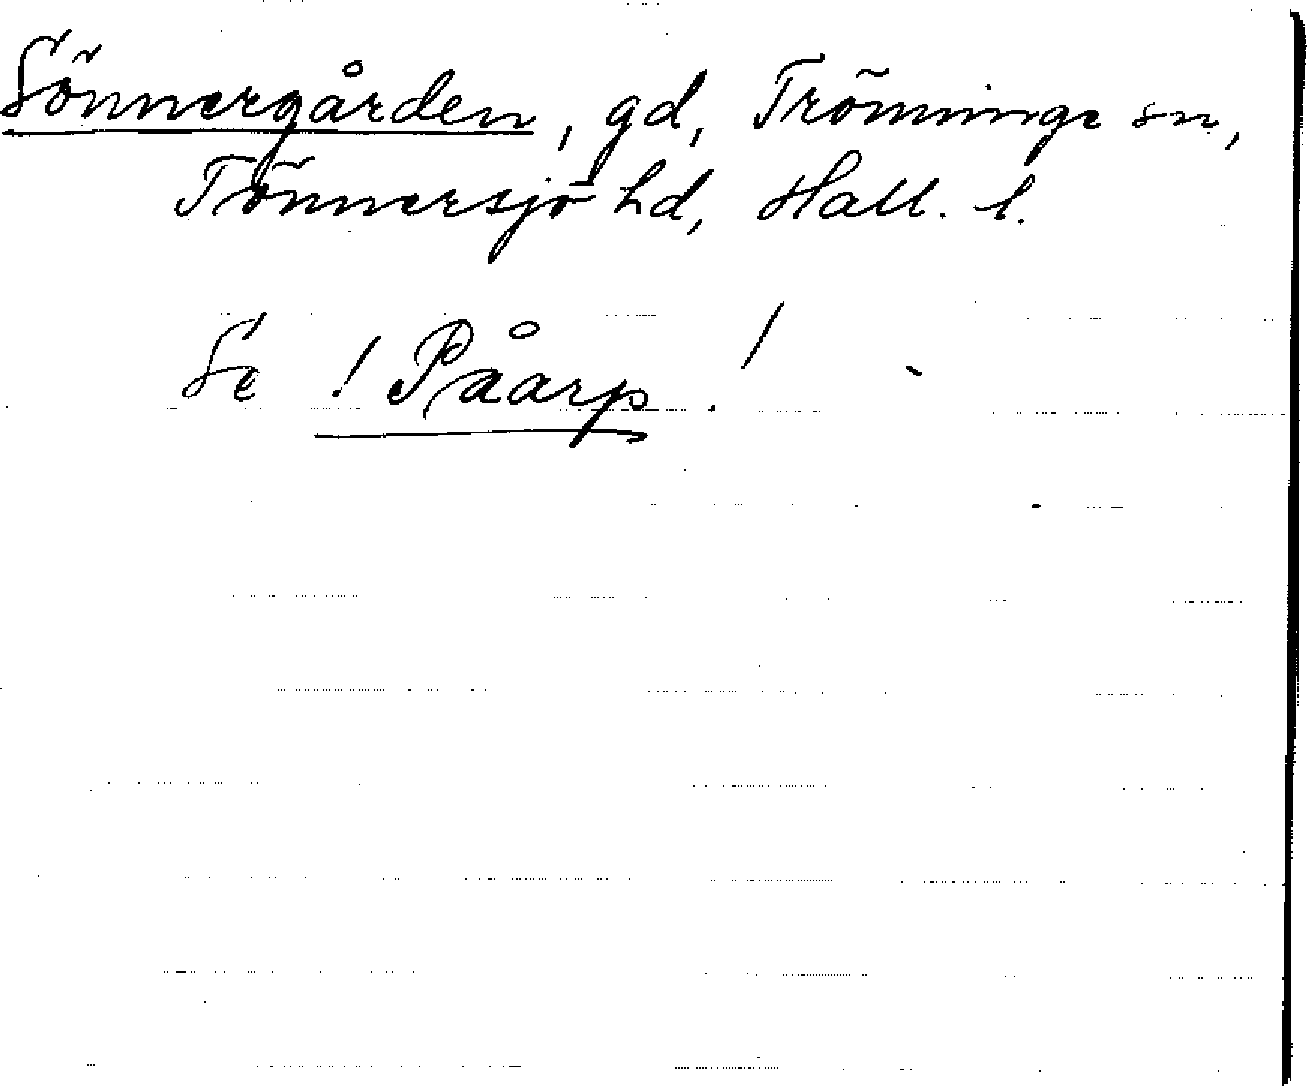 Sönnergården, gd, Trönninge sn,
Tönnersjö hd, Hall. l.
Se ! Påarp !